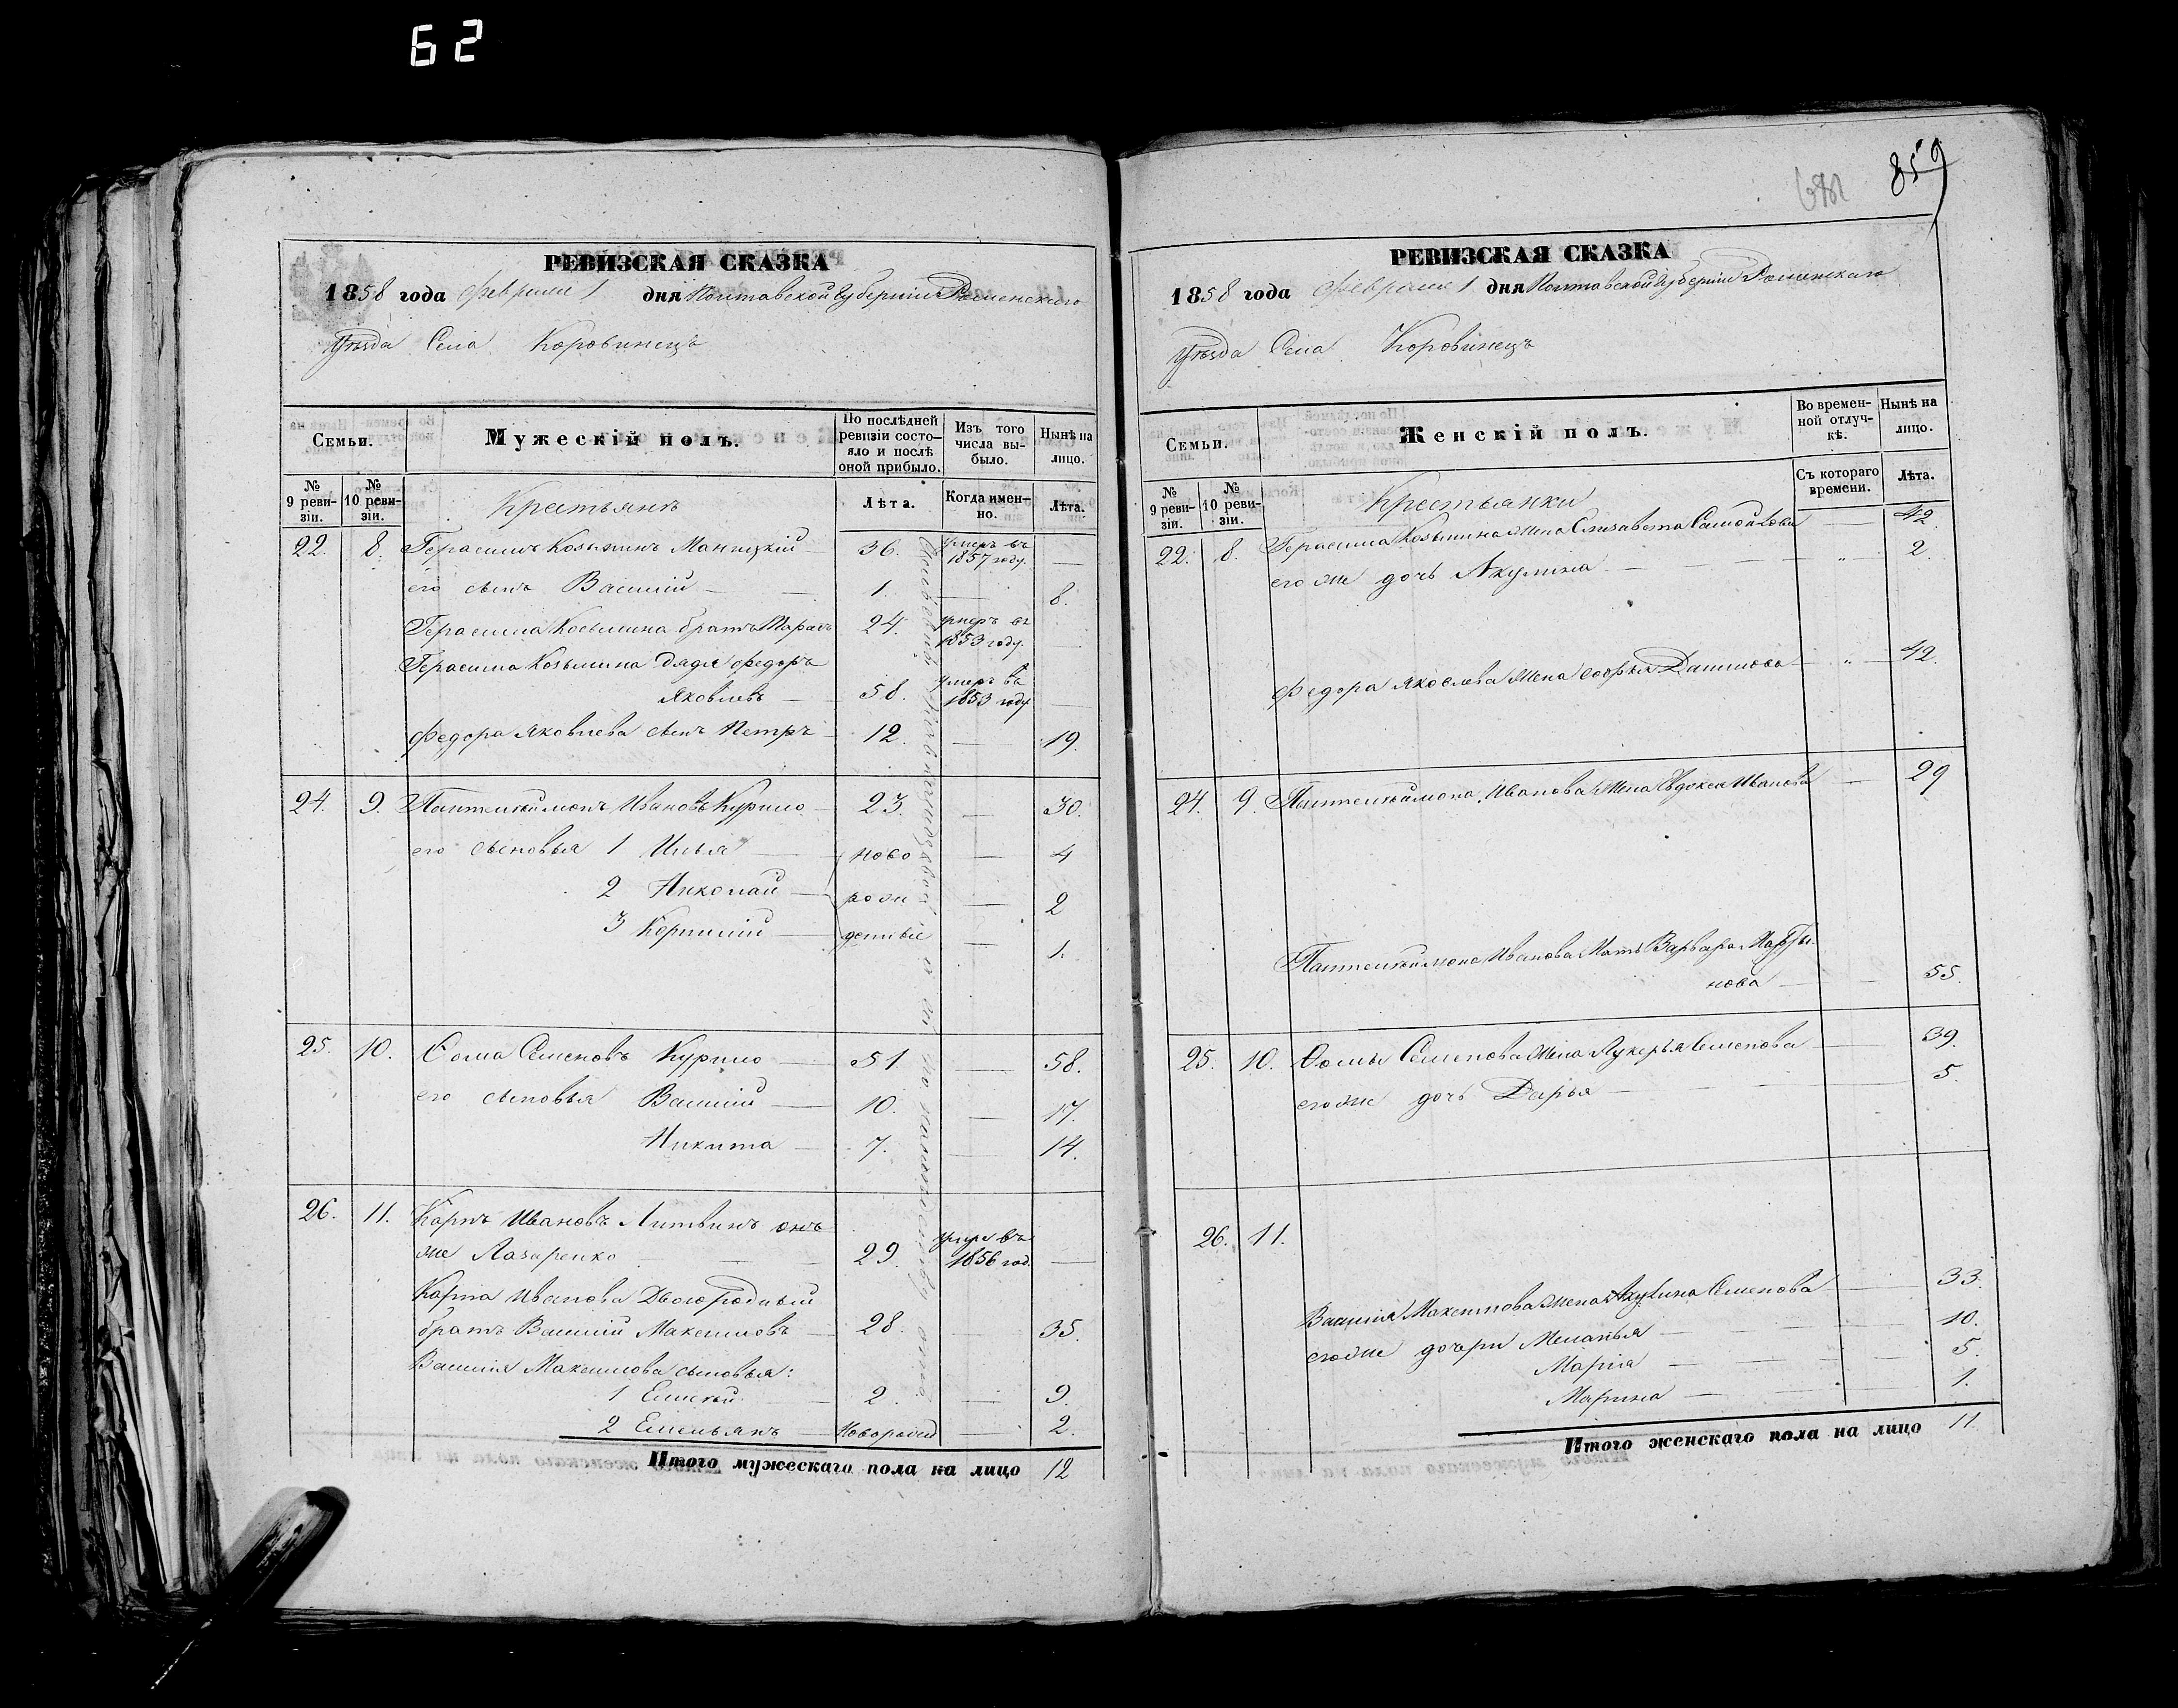 62
РЕВИЗСКАЯ СКАЗКА
1858 года Февраля 1 дня Полтавской Губерніи Роменского
Уѣзда Села Коровинецъ
Семьи.
Мужескій полъ.
По послѣдней ревизіи состо-
яло и послѣ
оной прибыло.
Изъ того
числа вы-
было.
Нынѣ на
лицо.
№ 9 реви-
зіи.
№ 10 реви-
зіи.
Крестьянъ
Лѣта.
Когда имен-
но.
Лѣта.
22. 8. Герасимъ Козьминъ 36. умеръ въ 1857 году. —
его сынъ Василий — 1. — 8.
Герасима Козьмина братъ Тарасъ 24. умеръ въ 1853 году. —
Герасима Козьмина дядя Федоръ
Яковлевъ — 58. умеръ въ 1853 году —
Федора Яковлева сынъ Петръ 12. — 19.
24. 9. Пантелеймонъ Ивановъ Курило 23. — 30.
его сыновья 1 Илья — ново — 4
2 Николай — рож — 2
3 Корнилій — денные — 1.
25. 10. Фома Семеновъ Курило — 51. — 58.
его сыновья Василий — 10. — 17.
Никита — 7. — 14.
26. 11. Карпъ Ивановъ Литвинъ онъ
же Лазаренко — 29. умеръ въ 1856 год. —
Карпа Иванова Двоюродный
братъ Василий Максимовъ — 28. 35.
Василія Максимова сыновья:
1 Елисей — 2. — 9.
2 Емельянъ — Новорожд — 2.
Итого мужескаго пола на лицо 12
859
РЕВИЗСКАЯ СКАЗКА
1858 года Февраля 1 дня Полтавской Губерніи Роменскаго
Уѣзда Села Коровинецъ
Семьи.
Женскій полъ.
Во времен-
ной отлуч-
кѣ.
Нынѣ на
лицо.
№ 9 реви-
зіи.
№ 10 реви-
зіи.
Крестьянки
Съ котораго
времени.
Лѣта.
22. 8. Герасима Козьмина жена Елизавета — 42.
его же дочь Акулина — " — 2.
Федора Яковлева жена Софья Данилова — " — 42.
24. 9. Пантелеймона Иванова жена Евдокея Иванова — 29
Пантелеймона Иванова Мать Варвара Марты-
нова — 55.
25. 10. Фомы Семенова жена Лукерья Семенова — 39.
его же дочь Дарья — 5.
26. 11.
Василія Максимова жена Акулина Семенова — 33.
его же дочери Меланья — 10.
Марія — 5.
Марина — 1.
Итого женскаго пола на лицо 11.